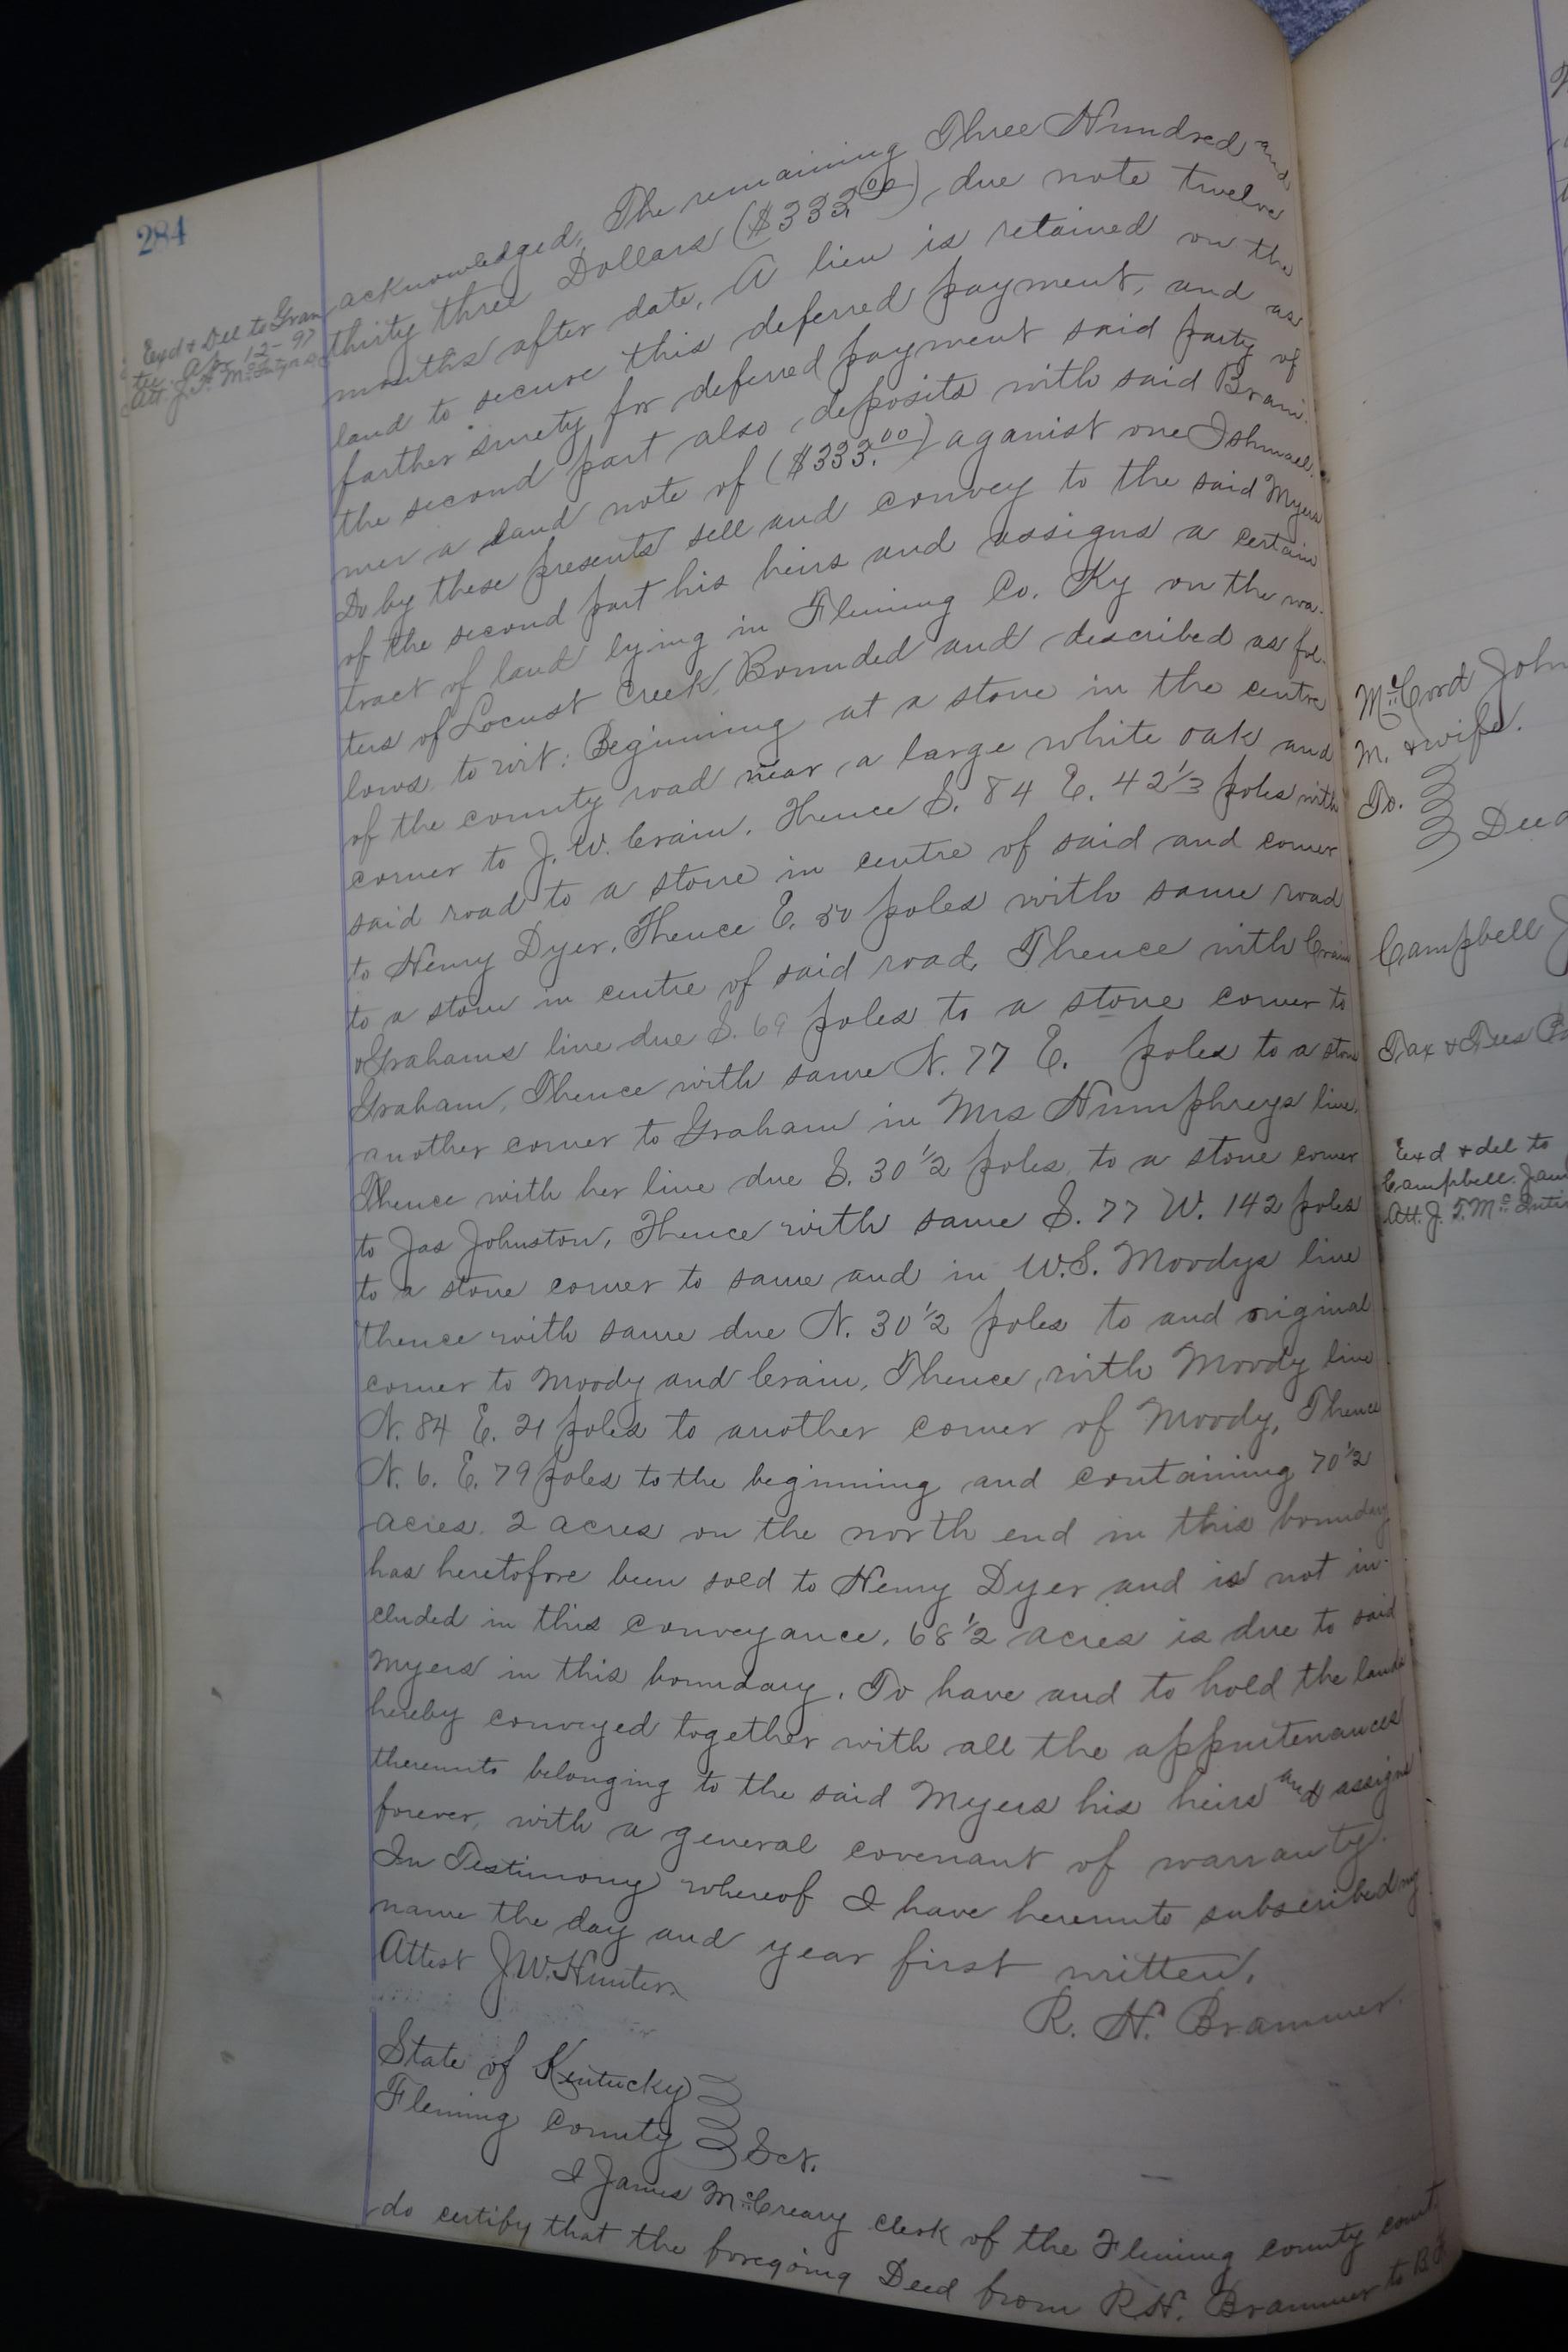 284
Exd & Del to Gran
tee. Apr 12-97
Att. J. F. McIntyre
acknowledged, The remaining Three Hundred and
thirty three Dollars ($333.00), due note twelve
months after date, A lien is retained on the
land to secure this deferred payment, and as
farther surety for deferred payment said party of
the second part also deposits with said Bram
mer a land note of ($333.00) aganist one Ishmael.
Do by these presents sell and convey to the said Myers
of the second part his heirs and assigns a certain
tract of land lying in Fleming Co. Ky on the wa-
ters of Locust Creek, Bounded and described as fol-
lows to wit: Beginning at a stone in the centre
of the county road near a large white oak and
corner to J. W. Crain, Thence S. 84 E. 42 1/3 poles with
said road to a stone in centre of said and corner
to Henry Dyer, Thence E. 50 poles with same road
to a stone in centre of said road, Thence with Crain
& Grahams line due S. 69 poles to a stone corner to
Graham, Thence with same N. 77 E. poles to a stone
another corner to Graham in Mrs Humphreys line,
Thence with her line due S. 30 1/2 poles to a stone corner
to Jas Johnston, Thence with same S. 77 W. 142 poles
to a stone corner to same and in W.S. Moodys line
thence with same due N. 30 1/2 poles to and original
corner to Moody and Crain, Thence, with Moody line
N. 84 E. 21 poles to another corner of Moody, Thence
N. 6. E. 79 poles to the beginning and containing 70 1/2
acres. 2 acres on the north end in this boundary
has heretofore been sold to Henry Dyer and is not in-
cluded in this conveyance, 68 1/2 acres is due to said
Myers in this boundary. To have and to hold the land
hereby conveyed together with all the appurtenances
thereunto belonging to the said Myers his heirs and assigns
forever, with a general covenant of warranty.
In Testimony whereof I have hereunto subscribed my
name the day and year first written.
Attest J.W. Hunter
R. H. Brammer.
State of Kentucky
Fleming County Sct.
I James McCreary clerk of the Fleming county court
do certify that the foregoing Deed from R.H. Brammer to B.F.
McCord John
M. & wife.
To.
Deed
Campbell J
Tax & Fees Pa
Exd & del to
Campbell. Jan
Att. J. F. McInti